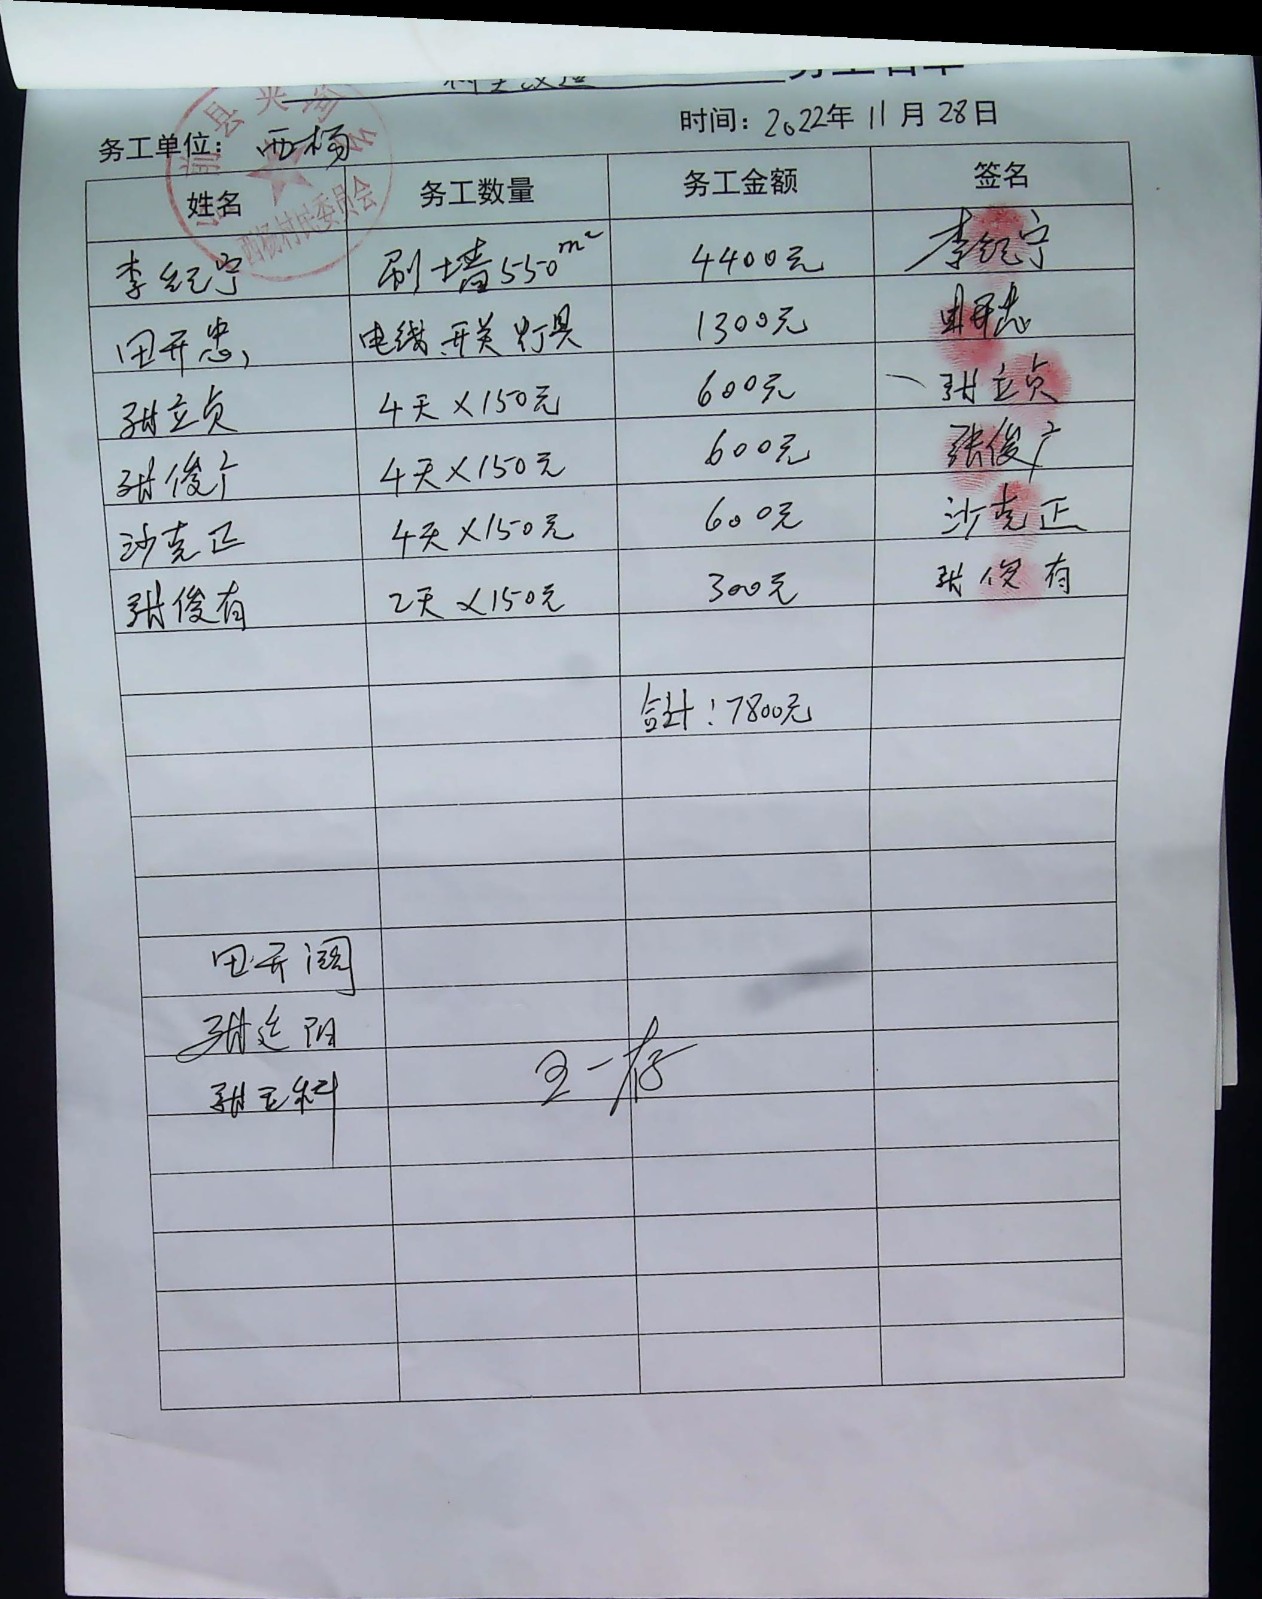 务工名单
时间：2022年11月28日
务工单位：西杨
西杨村民委员会
姓名 务工数量 务工金额 签名
李纪宁 刷墙550m² 4400元 李纪宁
田开忠 电线、开关 灯具 1300元 田开忠
张立贞 4天×150元 600元 张立贞
张俊广 4天×150元 600元 张俊广
沙克正 4天×150元 600元 沙克正
张俊有 2天×150元 300元 张俊有
合计：7800元
田开
张廷阳
张玉科
王一存